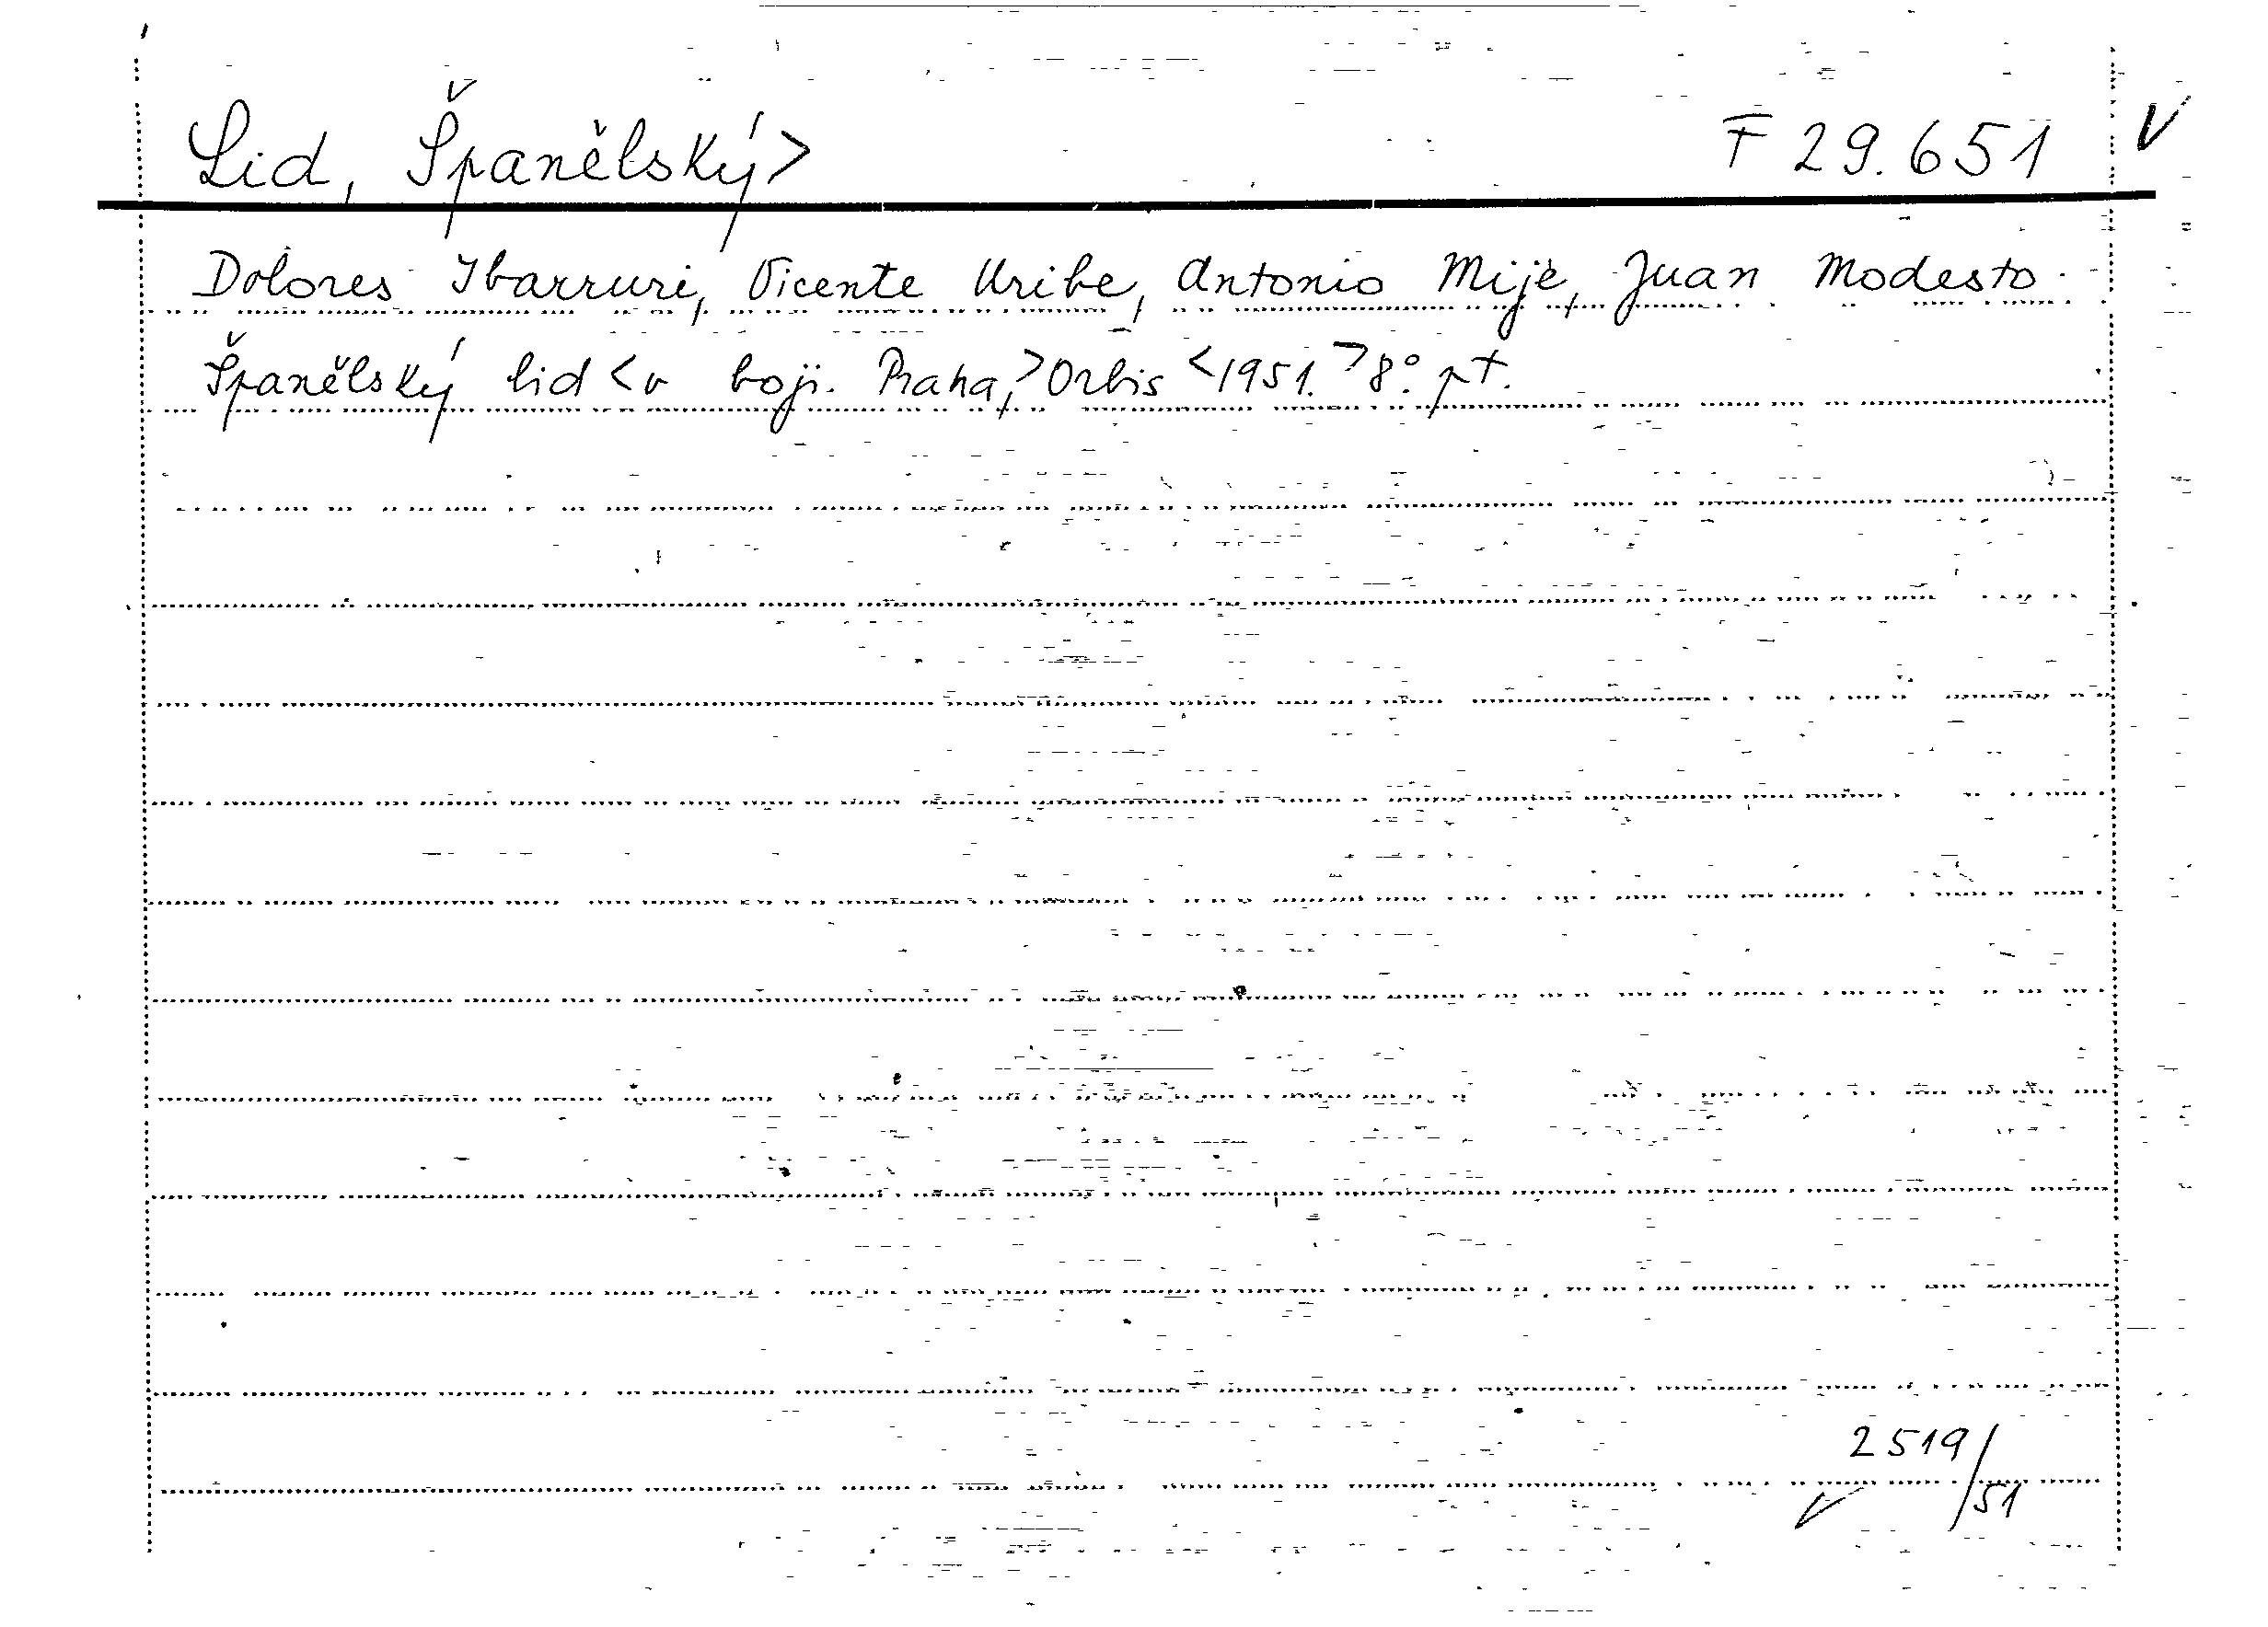 Lid, Španělský> F 29.651 V
Dolores Ibarruri, Vicente Uribe, Antonio Mije, Juan Modesto.
Španělský lid <v boji. Praha,> Orbis <1951.> 8°. pt.
2519/51